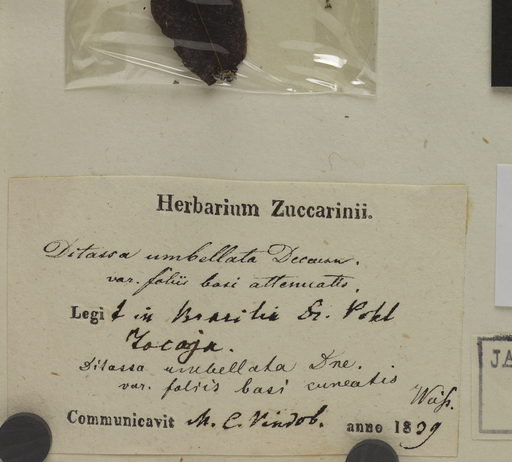 Herbarium Zuccarinii.
Ditassa umbellata Decaisn.
var. foliis basi attenuatis.
Legit in Brasilia Dr. Pohl
Tocaja.
Ditassa umbellata Dne.
var. foliis basi cuneatis
Communicavit M. C. Vindob. anno 1839
JA